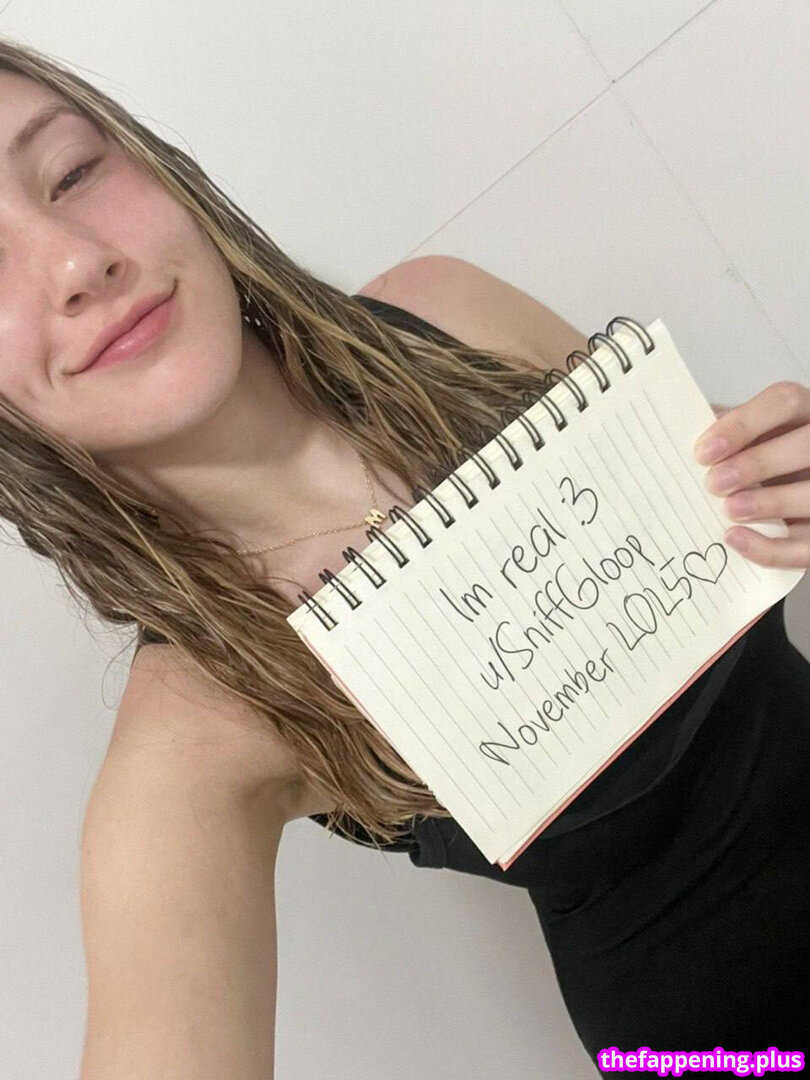 Im real :3
u/SniffGloop
November 2025♡
M
thefappening.plus